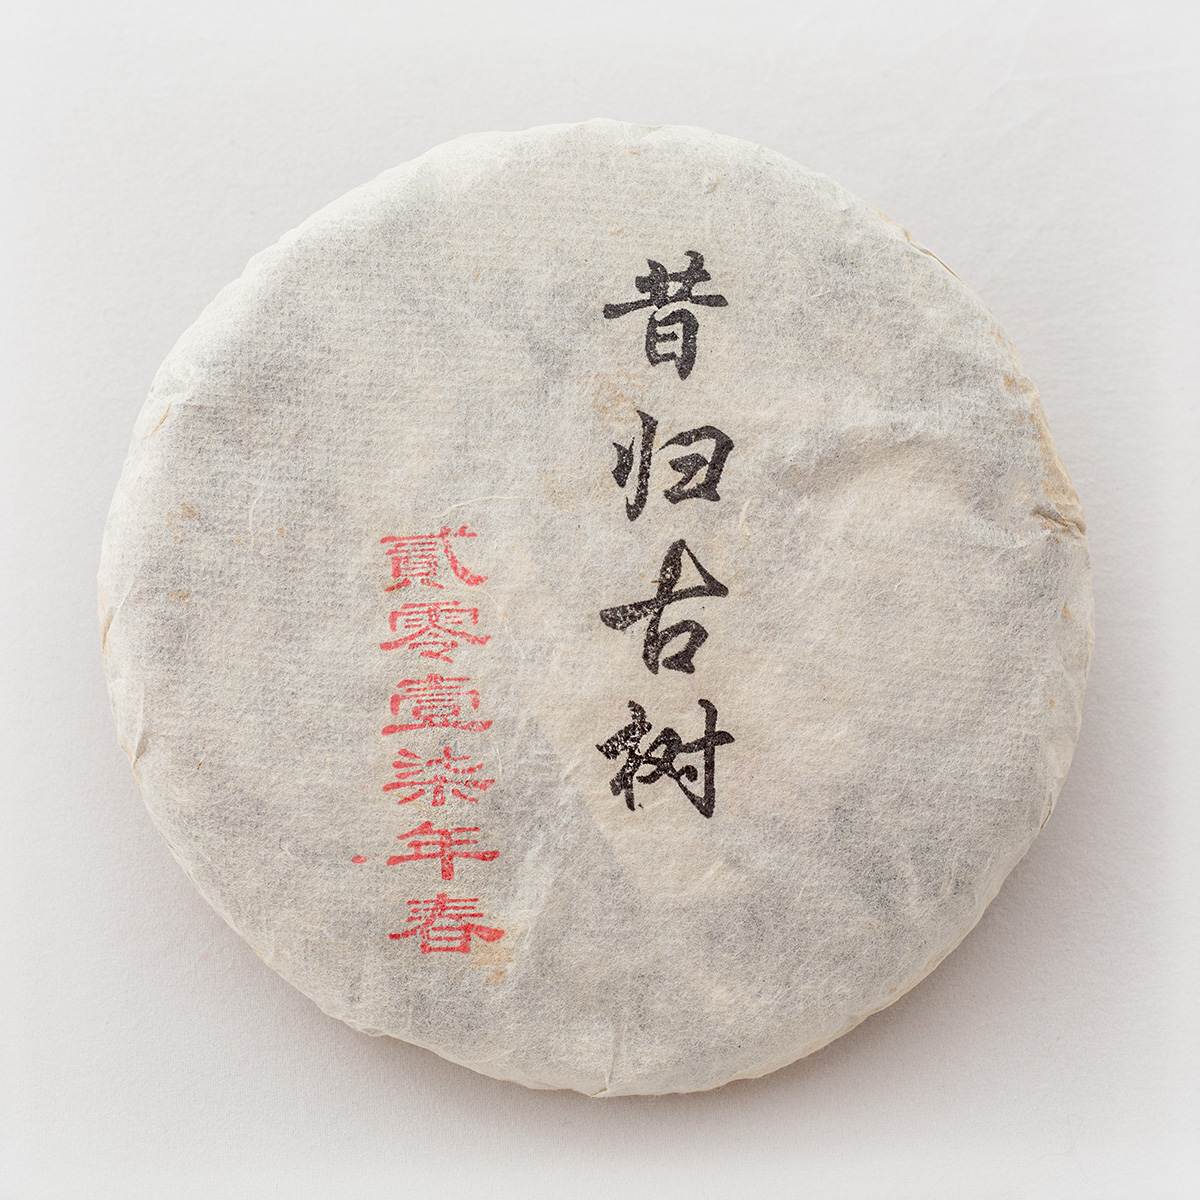 昔归古树
貳零壹柒年春